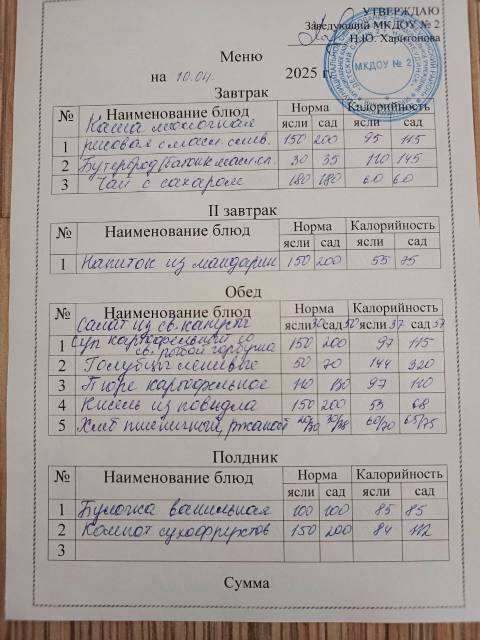 УТВЕРЖДАЮ
Заведующий МКДОУ № 2
Н.Ю. Харитонова
МКДОУ № 2
Меню
на 10.04. 2025 г.
Завтрак
№ Наименование блюд Норма Калорийность
ясли сад ясли сад
Каша молочная
1 рисовая с масл. слив. 150 200 95 115
2 Бутерброд/батон с масл. сл. 30 35 110 145
3 Чай с сахаром 180 180 60 60
II завтрак
№ Наименование блюд Норма Калорийность
ясли сад ясли сад
1 Напиток из мандарин 150 200 55 75
Обед
№ Наименование блюд Норма Калорийность
Салат из св. капусты ясли 30 сад 50 ясли 37 сад 57
1 Суп картофельный со 150 200 97 115
св. рыбой горбуша
2 Голубцы ленивые 50 70 144 320
3 Пюре картофельное 110 130 97 110
4 Кисель из повидла 150 200 53 68
5 Хлеб пшеничный, ржаной 60/70 65/75
Полдник
№ Наименование блюд Норма Калорийность
ясли сад ясли сад
1 Булочка ванильная 100 100 85 85
2 Компот сухофруктов 150 200 84 112
3
Сумма